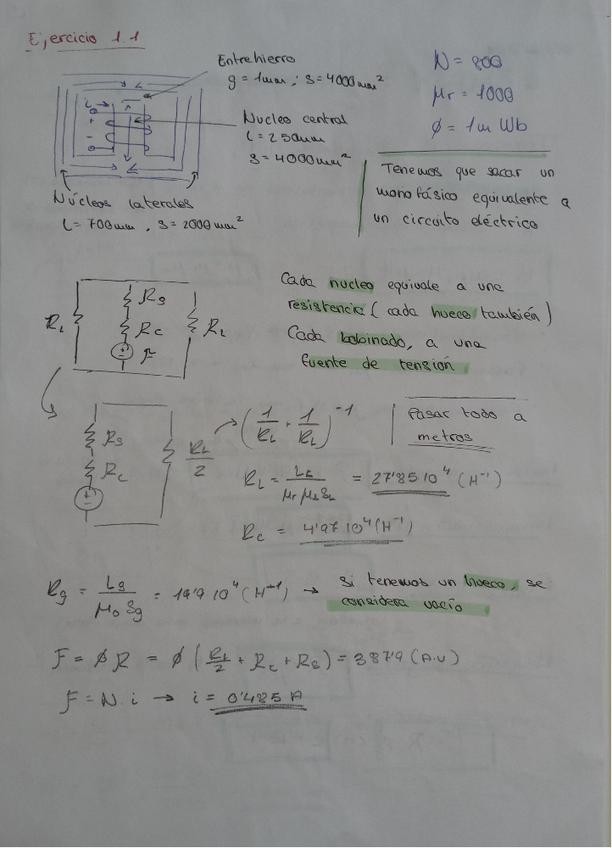 Ejercicio 1.1
Entrehierro
g = 1mm ; S = 4000 mm²
N = 800
μr = 1000
φ = 1m Wb
i
+
-
Nucleo central
L = 250mm
S = 4000mm²
Núcleos laterales
L = 700mm , S = 2000 mm²
Tenemos que sacar un
monofásico equivalente a
un circuito eléctrico
RL
Rg
Rc
F
RL
Cada nucleo equivale a una
resistencia (cada hueco también)
Cada bobinado, a una
fuente de tensión
Rg
Rc
RL/2
(1/RL + 1/RL)⁻¹
Pasar todo a
metros
RL = LL/(μr μ0 SL) = 27'85 10⁴ (H⁻¹)
Rc = 4'97 10⁴ (H⁻¹)
Rg = Lg/(μ0 Sg) = 19'9 10⁴ (H⁻¹) → Si tenemos un hueco, se
considera vacío
F = φ R = φ (RL/2 + Rc + Rg) = 387'9 (A.V)
F = N.i → i = 0'485 A